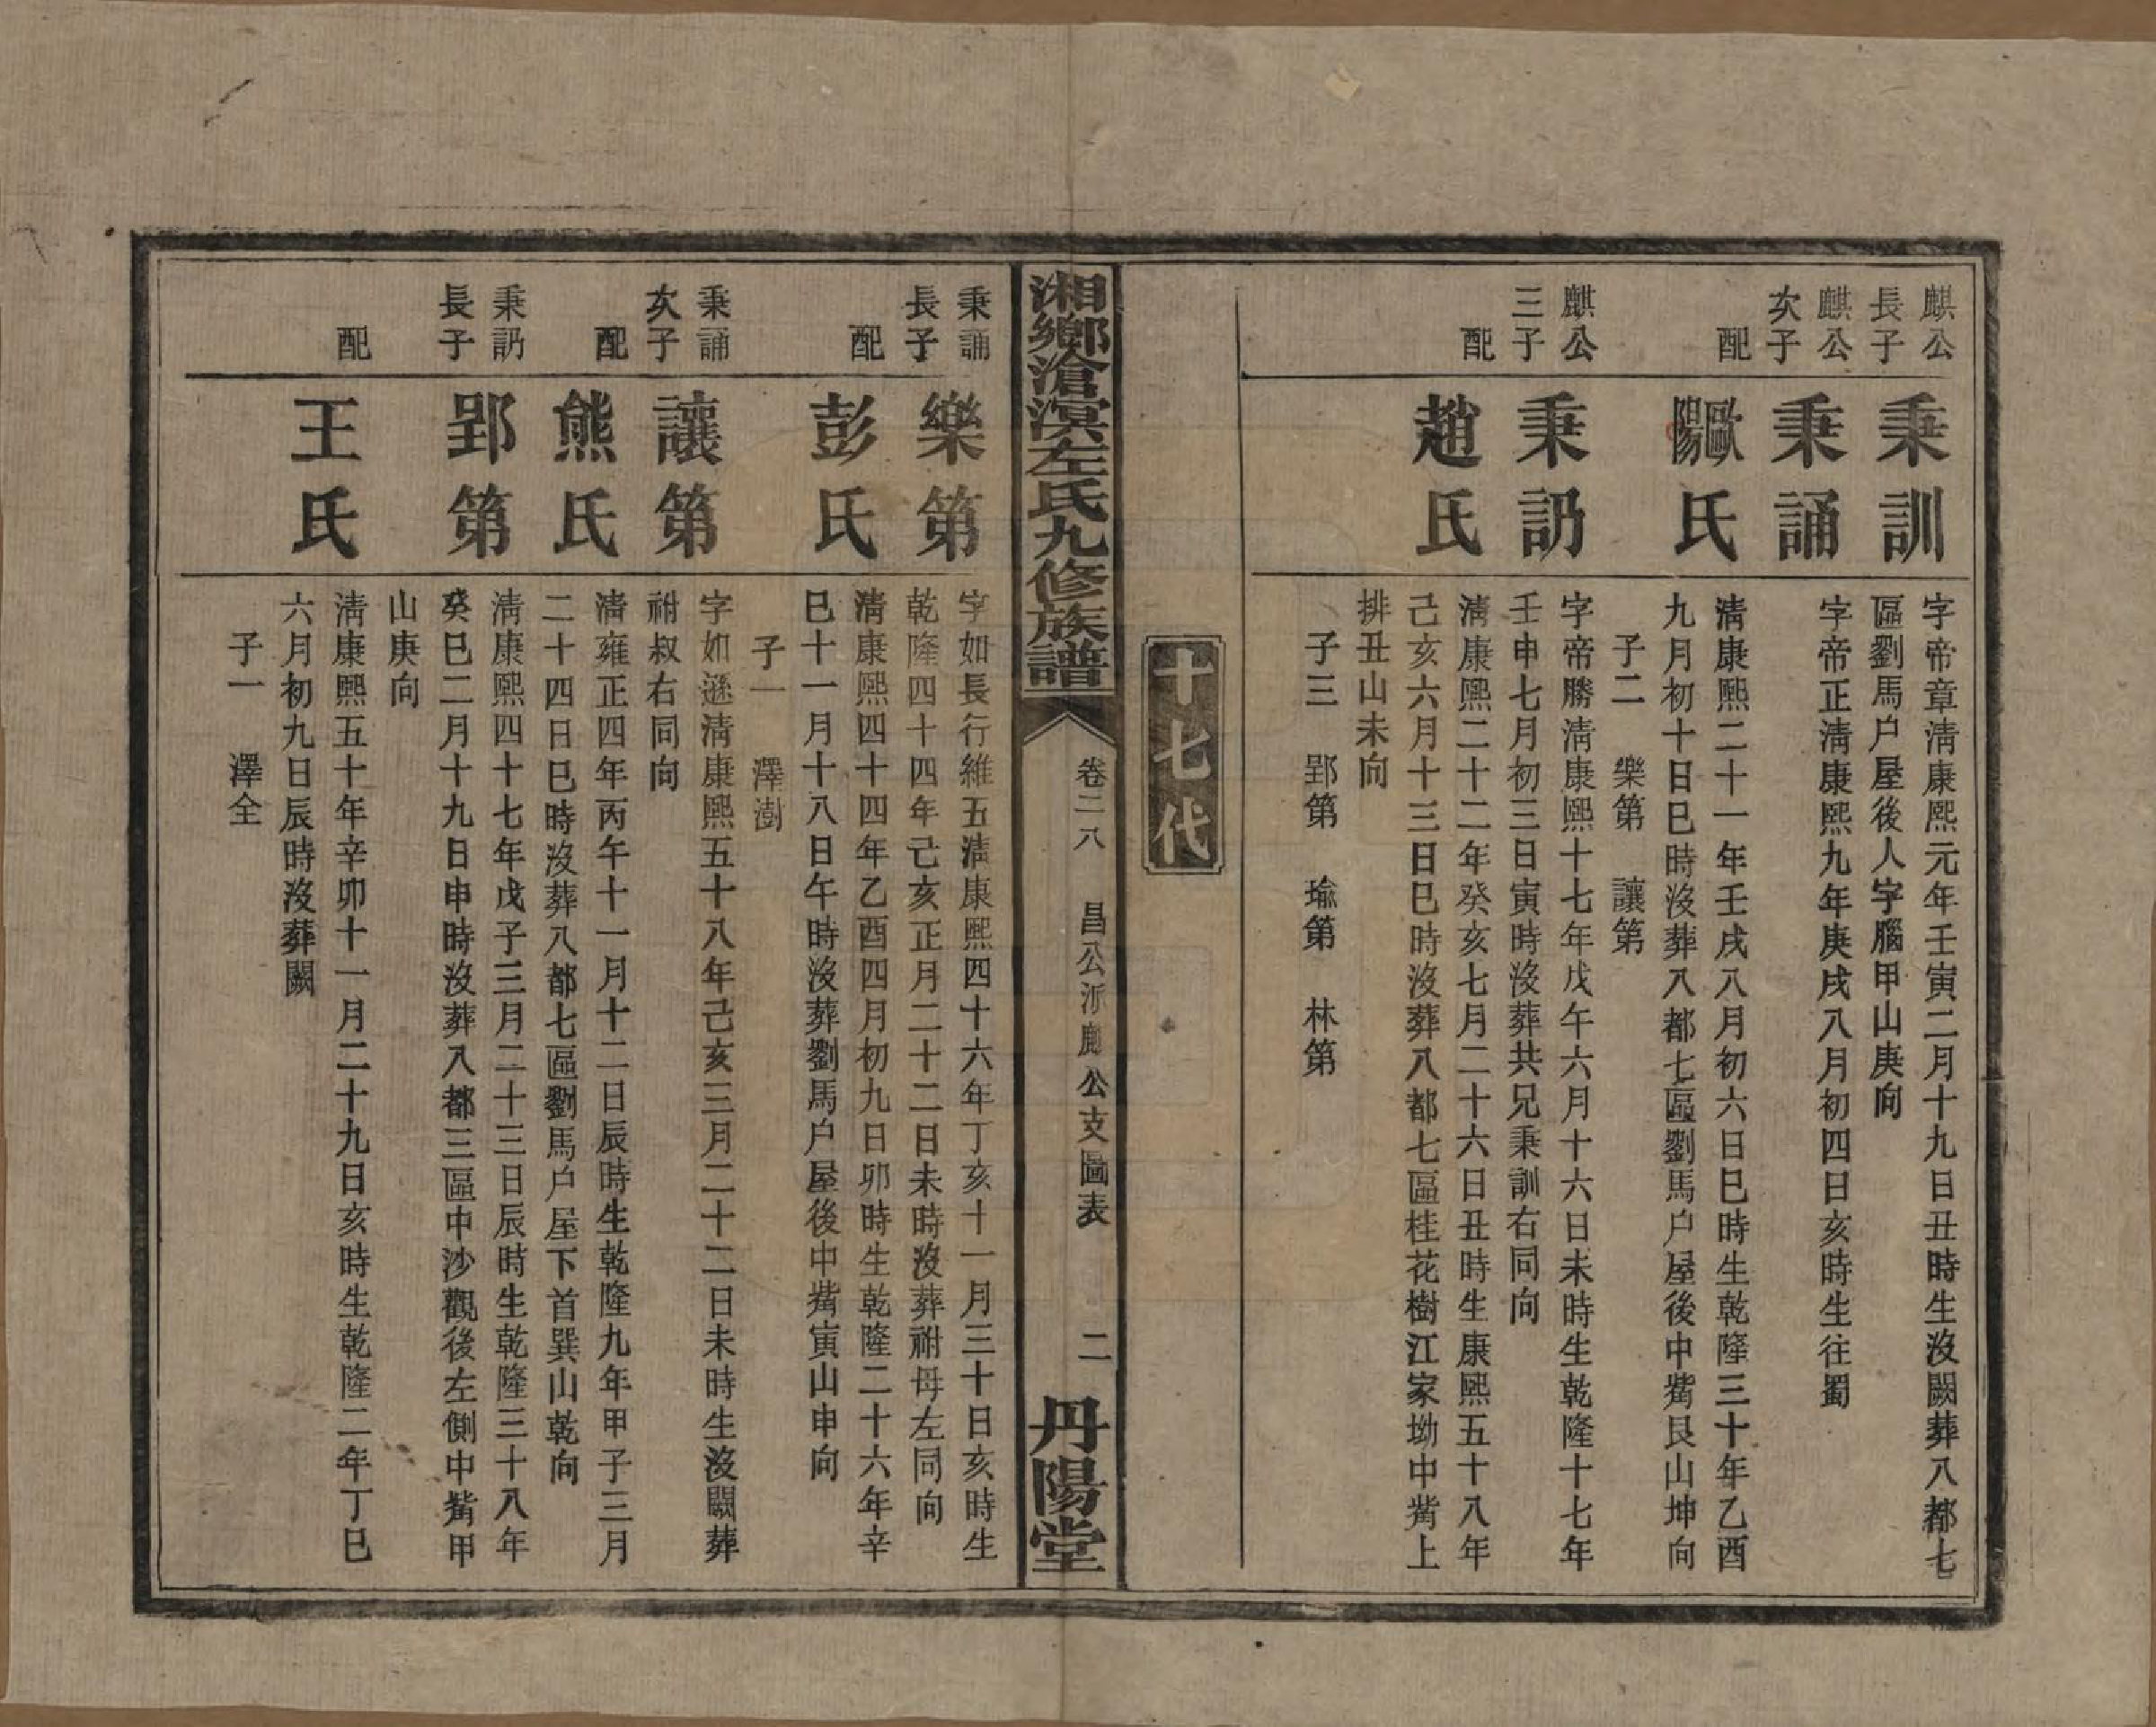 麒公
長子
秉訓
字帝章淸康熙元年壬寅二月十九日丑時生沒闕葬八都七
區劉馬户屋後人字腦甲山庚向
麒公
次子
秉誦
字帝正淸康熙九年庚戌八月初四日亥時生往蜀
配
歐陽氏
淸康熙二十一年壬戌八月初六日巳時生乾隆三十年乙酉
九月初十日巳時沒葬八都七區劉馬户屋後中觜艮山坤向
子二 樂第 讓第
麒公
三子
秉訒
字帝勝淸康熙十七年戊午六月十六日未時生乾隆十七年
壬申七月初三日寅時沒葬共兄秉訓右同向
配
趙氏
淸康熙二十二年癸亥七月二十六日丑時生康熙五十八年
己亥六月十三日巳時沒葬八都七區桂花樹江家坳中觜上
排丑山未向
子三 郢第 瑜第 林第
十七代
湘鄉滄溟左氏九修族譜
卷二八 昌公派 公支圖表 二
丹陽堂
秉誦
長子
樂第
字如長行維五淸康熙四十六年丁亥十一月三十日亥時生
乾隆四十四年己亥正月二十二日未時沒葬祔母左同向
配
彭氏
淸康熙四十四年乙酉四月初九日卯時生乾隆二十六年辛
巳十一月十八日午時沒葬劉馬户屋後中觜寅山申向
子一 澤澍
秉誦
次子
讓第
字如遜淸康熙五十八年己亥三月二十二日未時生沒闕葬
祔叔右同向
配
熊氏
淸雍正四年丙午十一月十二日辰時生乾隆九年甲子三月
二十四日巳時沒葬八都七區劉馬户屋下首巽山乾向
秉訒
長子
郢第
淸康熙四十七年戊子三月二十三日辰時生乾隆三十八年
癸巳二月十九日申時沒葬八都三區中沙觀後左側中觜甲
山庚向
配
王氏
淸康熙五十年辛卯十一月二十九日亥時生乾隆二年丁巳
六月初九日辰時沒葬闕
子一 澤全